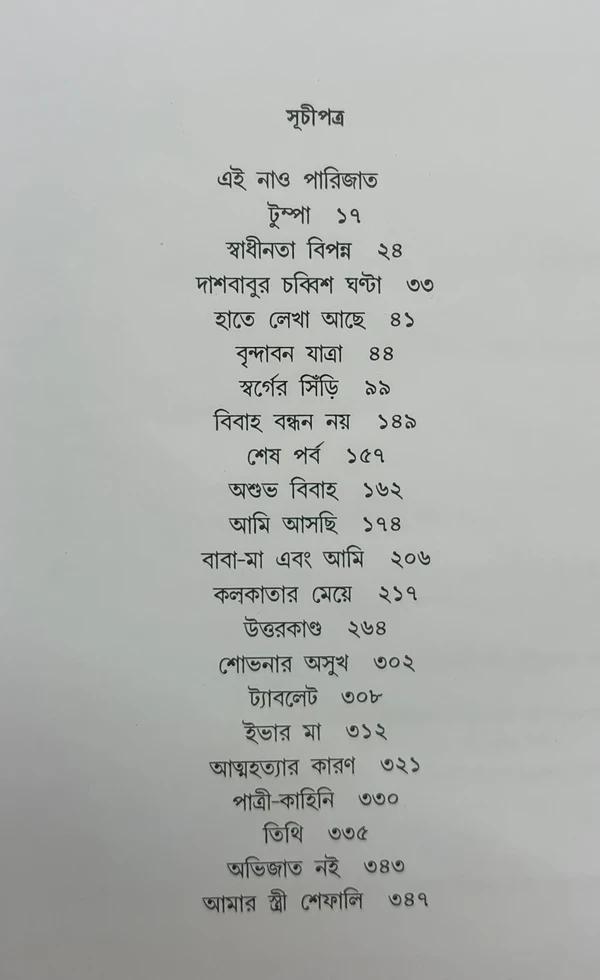 সূচীপত্র
এই নাও পারিজাত
টুম্পা ১৭
স্বাধীনতা বিপন্ন ২৪
দাশবাবুর চব্বিশ ঘণ্টা ৩৩
হাতে লেখা আছে ৪১
বৃন্দাবন যাত্রা ৪৪
স্বর্গের সিঁড়ি ৯৯
বিবাহ বন্ধন নয় ১৪৯
শেষ পর্ব ১৫৭
অশুভ বিবাহ ১৬২
আমি আসছি ১৭৪
বাবা-মা এবং আমি ২০৬
কলকাতার মেয়ে ২১৭
উত্তরকাণ্ড ২৬৪
শোভনার অসুখ ৩০২
ট্যাবলেট ৩০৮
ইভার মা ৩১২
আত্মহত্যার কারণ ৩২১
পাত্রী-কাহিনি ৩৩০
তিথি ৩৩৫
অভিজাত নই ৩৪৩
আমার স্ত্রী শেফালি ৩৪৭